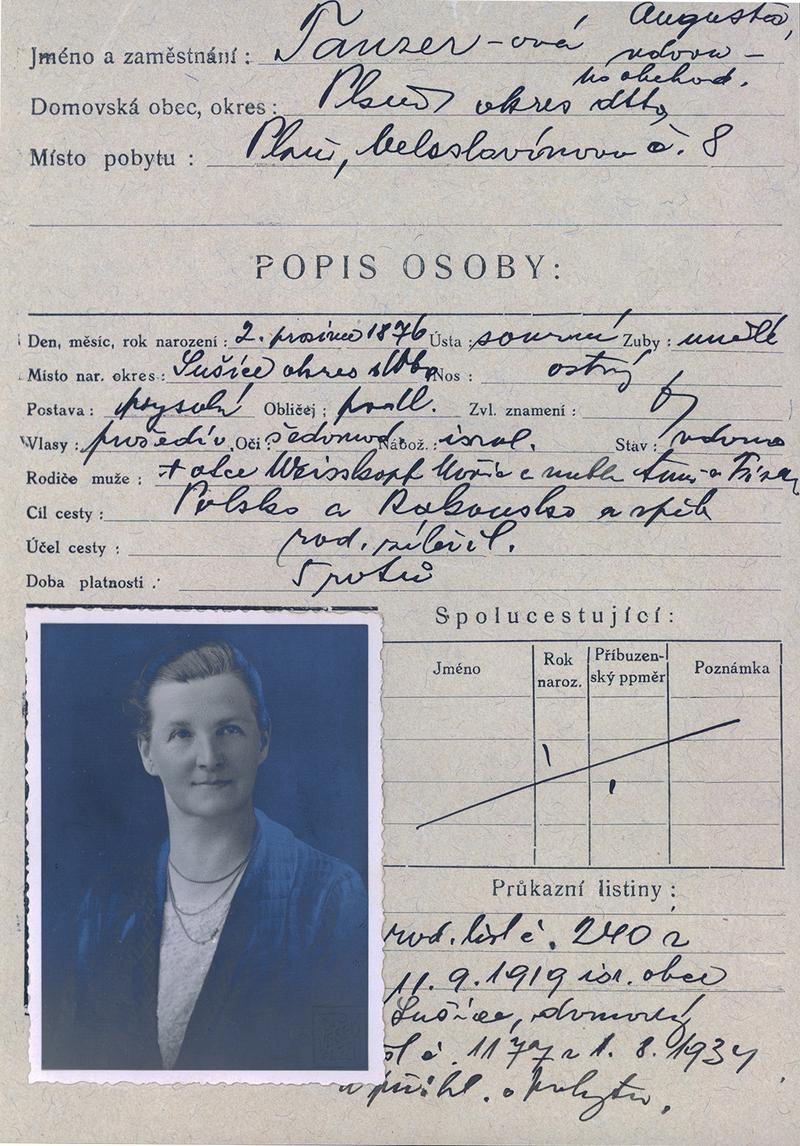 Augusta,
Jméno a zaměstnání : Tanzer-ová vdova -
po obchod.
Domovská obec, okres : Plzeň okres dtto
Místo pobytu : Plzeň, č. 8
POPIS OSOBY:
Den, měsíc, rok narození : 2. prosince 1876 Ústa : souměr Zuby : umělé
Místo nar. okres : Sušice okres dtto Nos : ostrý
Postava : vysoká Obličej ; podl. Zvl. znamení :
Vlasy : prošediv. Oči : šedomod. Nábož. : isral. Stav : vdova
Rodiče muže : + otce Weisskopf Moric a matka Anna
Cíl cesty : Polsko a Rakousko a zpět
Účel cesty : rod. záležit.
Doba platnosti : 5 roků
Spolucestující :
Jméno Rok naroz. Příbuzen-ský ppměr Poznámka
Průkazní listiny :
rod. list č. 240 z
11.9.1919 isr. obce
Sušice, domovský
č. 1177 z 1.8.1934
a přihl. o pobytu.